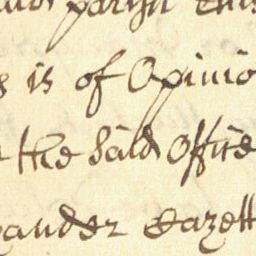 parish this
is of Opinio
the said Office
ander Cazett